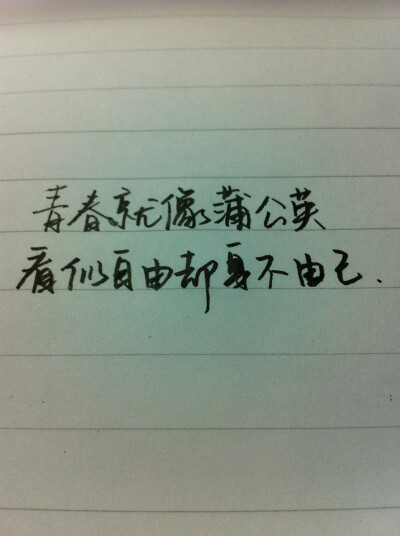 青春就像蒲公英
看似自由却身不由己.